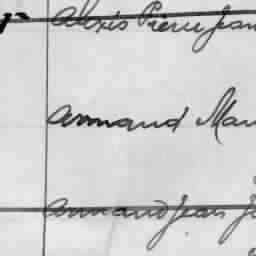 Alexis Pierre Jean
Armand Mau
Armand Jean